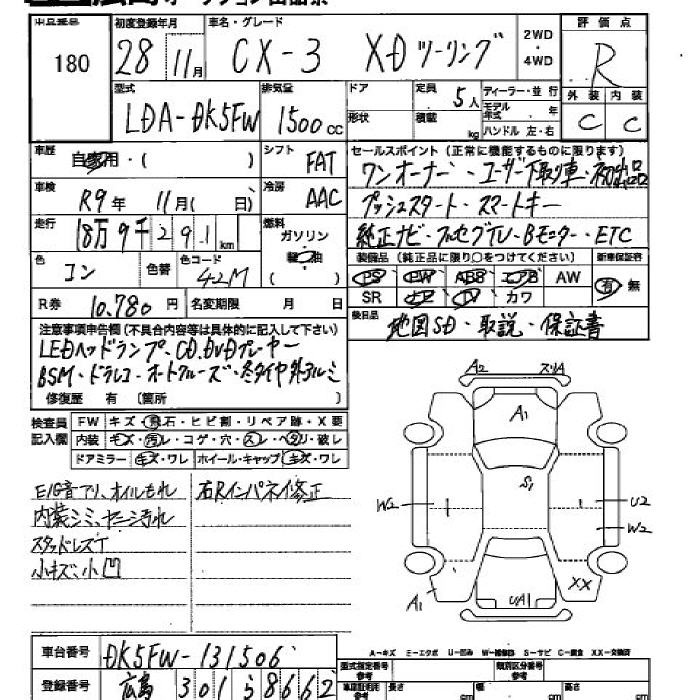 出品番号 初度登録年月 車名・グレード 2WD ・ 4WD 評価点
180 28 11月 CX-3 XD ツーリング R
型式 排気量 ドア 定員 5人 ディーラー・並行 外装 内装
LDA-DK5FW 1500cc 形状 積載 kg モデル年式 年 ハンドル 左・右 C C
車歴 自家用・( ) シフト FAT セールスポイント(正常に機能するものに限ります)
車検 R9年 11月( 日) 冷房 AAC ワンオーナー・ユーザー下取り車・初出品
プッシュスタート・スマートキー
走行 18万9千291km 燃料 ガソリン・軽油 ( ) 純正ナビ・フルセグTV・Bモニター・ETC
色 コン 色替 色コード 42M 装備品(純正品に限り○をつけてください) 新車保証書
PS PW ABS エアB AW 有・無
R券 10.780円 名変期限 月 日 SR ナビ TV カワ
注意事項申告欄(不具合内容等は具体的に記入して下さい) 後日品 地図SD・取説・保証書
LEDヘッドランプ、CD.DVDプレーヤー
BSM・ドラレコ・オートクルーズ・冬タイヤ外アルミ
修復歴 有 〔箇所 〕
検査員記入欄 FW キズ・飛石・ヒビ割・リペア跡・X要
内装 キズ・汚レ・コゲ・穴・スレ・ヘタリ・破レ
ドアミラー キズ・ワレ ホイール・キャップ キズ・ワレ
E/G音アリ、オイルもれ 右Rインパネイ修正
内装シミ、ヤニ汚れ
スタッドレスT
小キズ、小凹
A2 スリA
A1
S1
W2 U2
W2
A1 UA1 XX
A-キズ E-エクボ U-凹み W-補修跡 S-サビ C-腐食 XX-交換済
車台番号 DK5FW-131506 型式指定番号 参考 類別区分番号 参考
登録番号 広島 301 ら 8662 車庫証明用 参考 長さ cm 幅 cm 高さ cm